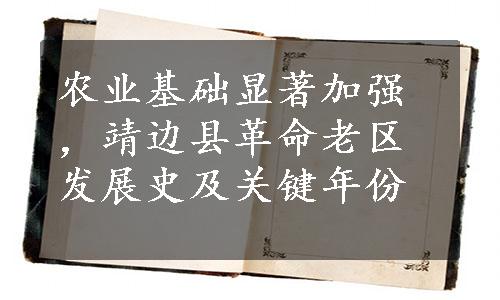 农业基础显著加强
，靖边县革命老区
发展史及关键年份